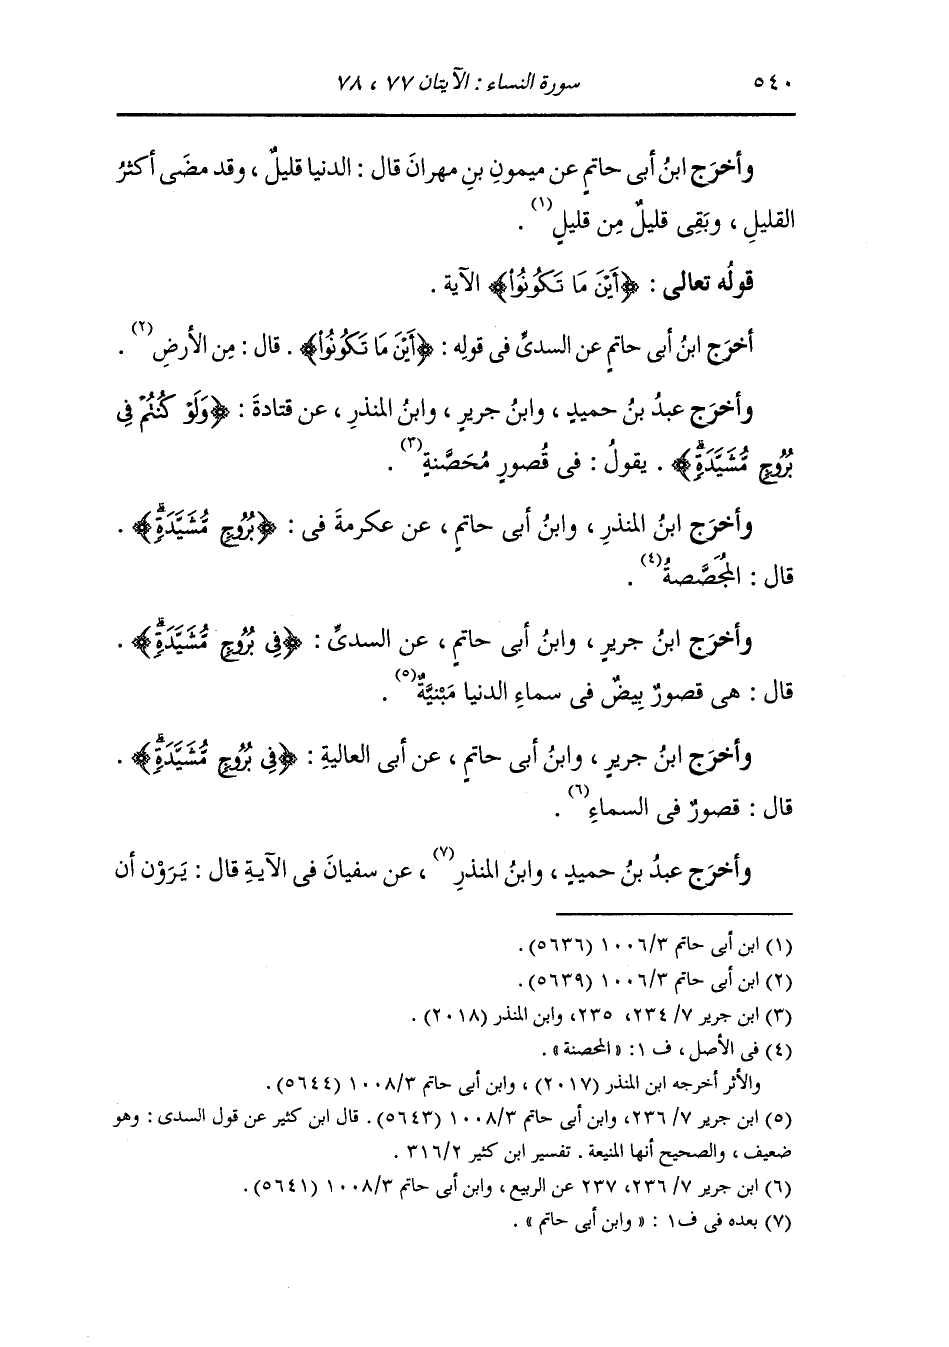 ٥٤٠ سورة النساء : الآيتان ٧٧ ، ٧٨
وأخرَج ابنُ أبى حاتمٍ عن ميمونِ بنِ مهرانَ قال : الدنيا قليلٌ ، وقد مضَى أكثرُ
القليلِ ، وبَقِى قليلٌ مِن قليلٍ(١) .
قولُه تعالى : ﴿أَيْنَ مَا تَكُونُوا۟﴾ الآية .
أخرَج ابنُ أبى حاتمٍ عن السدىِّ فى قولِه : ﴿أَيْنَ مَا تَكُونُوا۟﴾ . قال : مِن الأرضِ(٢) .
وأخرَج عبدُ بنُ حميدٍ ، وابنُ جريرٍ ، وابنُ المنذرِ ، عن قتادةَ : ﴿وَلَوْ كُنتُمْ فِى
بُرُوجٍ مُّشَيَّدَةٍۗ﴾ . يقولُ : فى قُصورٍ مُحَصَّنةٍ(٣) .
وأخرَج ابنُ المنذرِ ، وابنُ أبى حاتمٍ ، عن عكرمةَ فى : ﴿بُرُوجٍ مُّشَيَّدَةٍۗ﴾ .
قال : المُجَصَّصةُ(٤) .
وأخرَج ابنُ جريرٍ ، وابنُ أبى حاتمٍ ، عن السدىِّ : ﴿فِى بُرُوجٍ مُّشَيَّدَةٍۗ﴾ .
قال : هى قصورٌ بِيضٌ فى سماءِ الدنيا مَبْنيَّةٌ(٥) .
وأخرَج ابنُ جريرٍ ، وابنُ أبى حاتمٍ ، عن أبى العاليةِ : ﴿فِى بُرُوجٍ مُّشَيَّدَةٍۗ﴾ .
قال : قصورٌ فى السماءِ(٦) .
وأخرَج عبدُ بنُ حميدٍ ، وابنُ المنذرِ(٧) ، عن سفيانَ فى الآيةِ قال : يَرَوْن أن
(١) ابن أبى حاتم ١٠٠٦/٣ (٥٦٣٦) .
(٢) ابن أبى حاتم ١٠٠٦/٣ (٥٦٣٩) .
(٣) ابن جرير ٧/ ٢٣٤، ٢٣٥، وابن المنذر (٢٠١٨) .
(٤) فى الأصل ، ف ١: «المحصنة» .
والأثر أخرجه ابن المنذر (٢٠١٧) ، وابن أبى حاتم ١٠٠٨/٣ (٥٦٤٤) .
(٥) ابن جرير ٧/ ٢٣٦، وابن أبى حاتم ١٠٠٨/٣ (٥٦٤٣) . قال ابن كثير عن قول السدى : وهو
ضعيف ، والصحيح أنها المنيعة . تفسير ابن كثير ٣١٦/٢ .
(٦) ابن جرير ٧/ ٢٣٦، ٢٣٧ عن الربيع ، وابن أبى حاتم ١٠٠٨/٣ (٥٦٤١) .
(٧) بعده فى ف١ : « وابن أبى حاتم » .